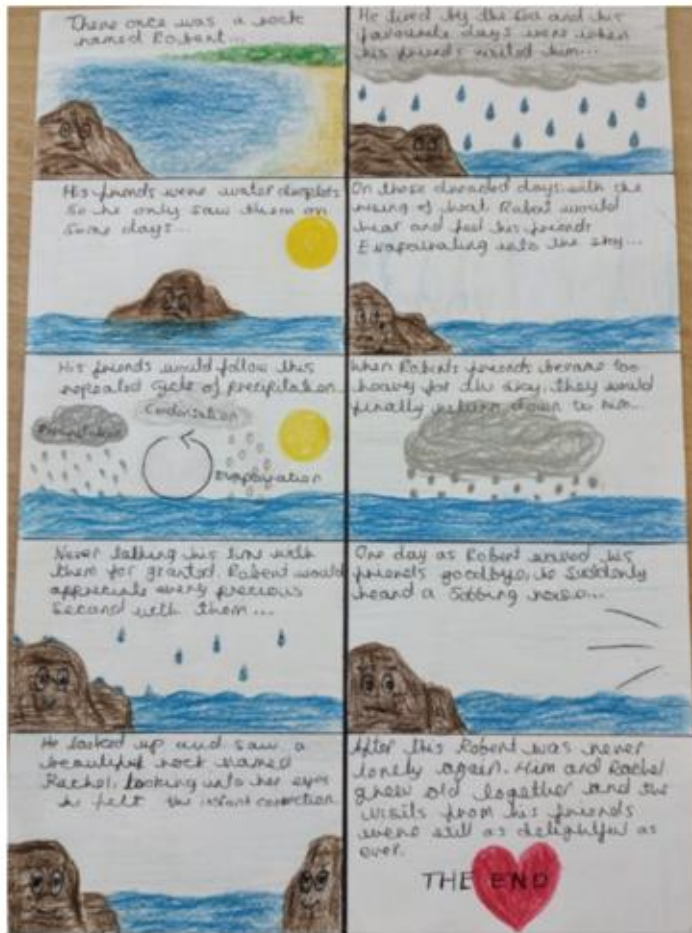 There once was a rock
named Robert...
He lived by the Sea and his
favourite days were when
his friends visited him...
His friends were water droplets
So he only saw them on
Some days...
On those dreaded days with the
rising of heat Robert would
hear and feel his friends
Evaporating into the sky...
His friends would follow this
repeated cycle of precipitation...
Condensation
Precipitation
Evaporation
When Roberts friends became too
heavy for the sky, they would
finally return down to him...
Never talking his time with
them for granted, Robert would
appreciate every precious
Second with them...
One day as Robert waved his
friends goodbye, he Suddenly
heard a Sobbing noise...
He looked up and saw a
beautiful rock named
Rachel, looking into her eyes
he felt the instant connection
After this Robert was never
lonely again. Him and Rachel
grew old together and the
visits from his friends
were still as delightful as
ever.
THE END